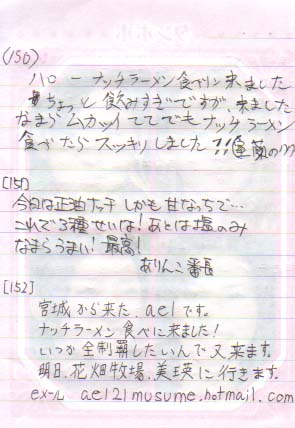 タンポポ
(150)
ハロー ナッチラーメン食べリン来ました
ちょっと飲みすぎですが、来ました
なまらムカツイててでもナッチラーメン
食べたらスッキリしました!!
[151]
今日は正油ナッチ しかも甘なっちで…
これで3種せいは! あとは塩のみ
なまらうまい! 最高!
ありんこ番長
[152]
宮城から来た、aelです。
ナッチラーメン食べに来ました!
いつか全制覇したいんで又来ます。
明日、花畑牧場、美瑛に行きます。
exール ael21musume.hotmail.com